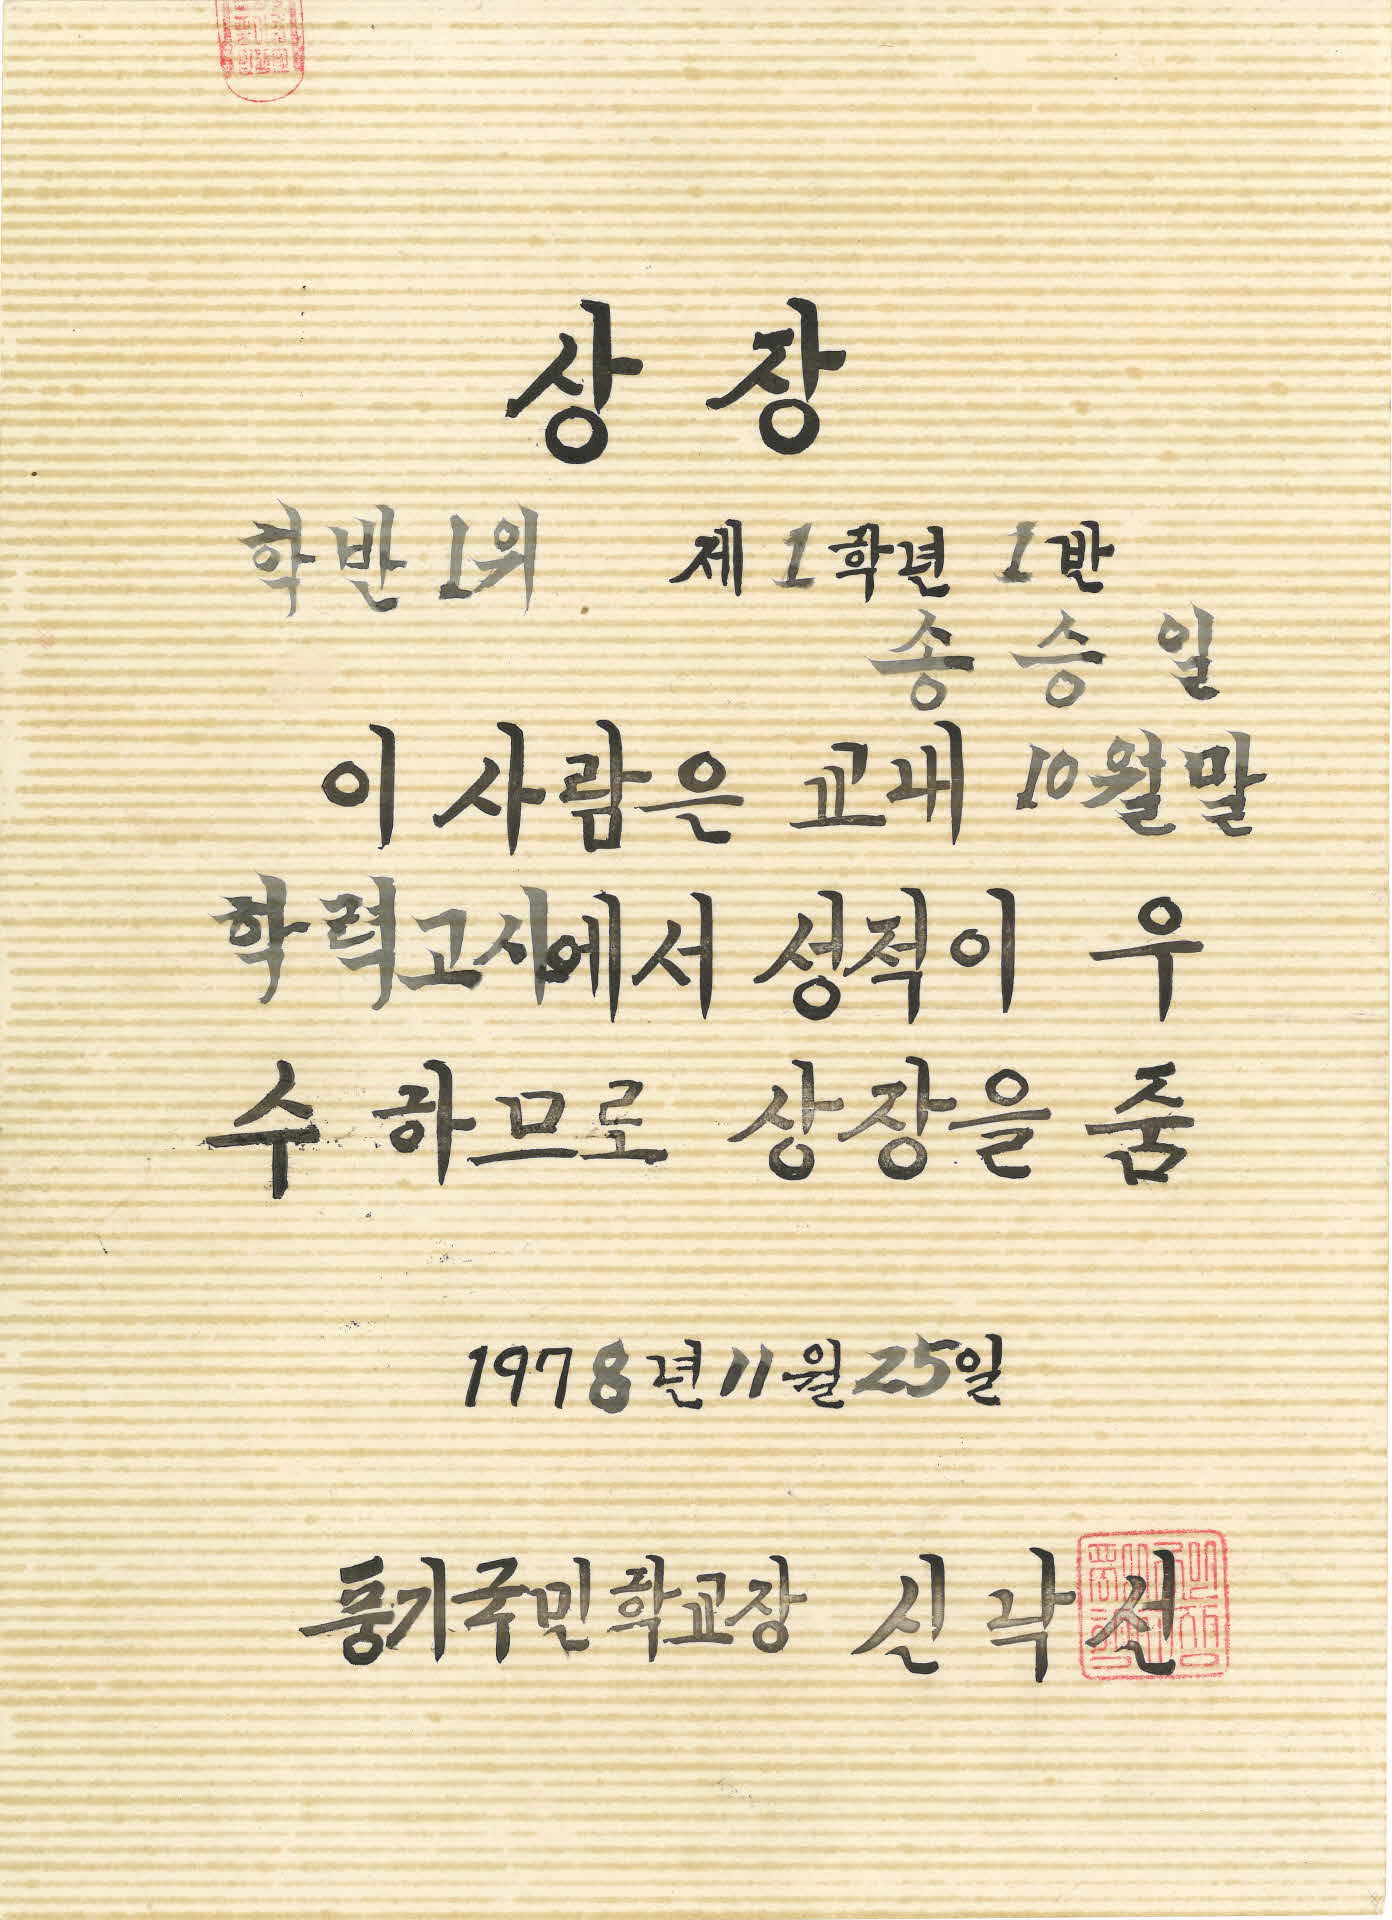 상 장
학반 1위 제 1 학년 1 반
송 승 일
이 사람은 교내 10월말
학력고사에서 성적이 우
수 하므로 상장을 줌
1978년 11월 25일
풍기국민학교장 신 각 신